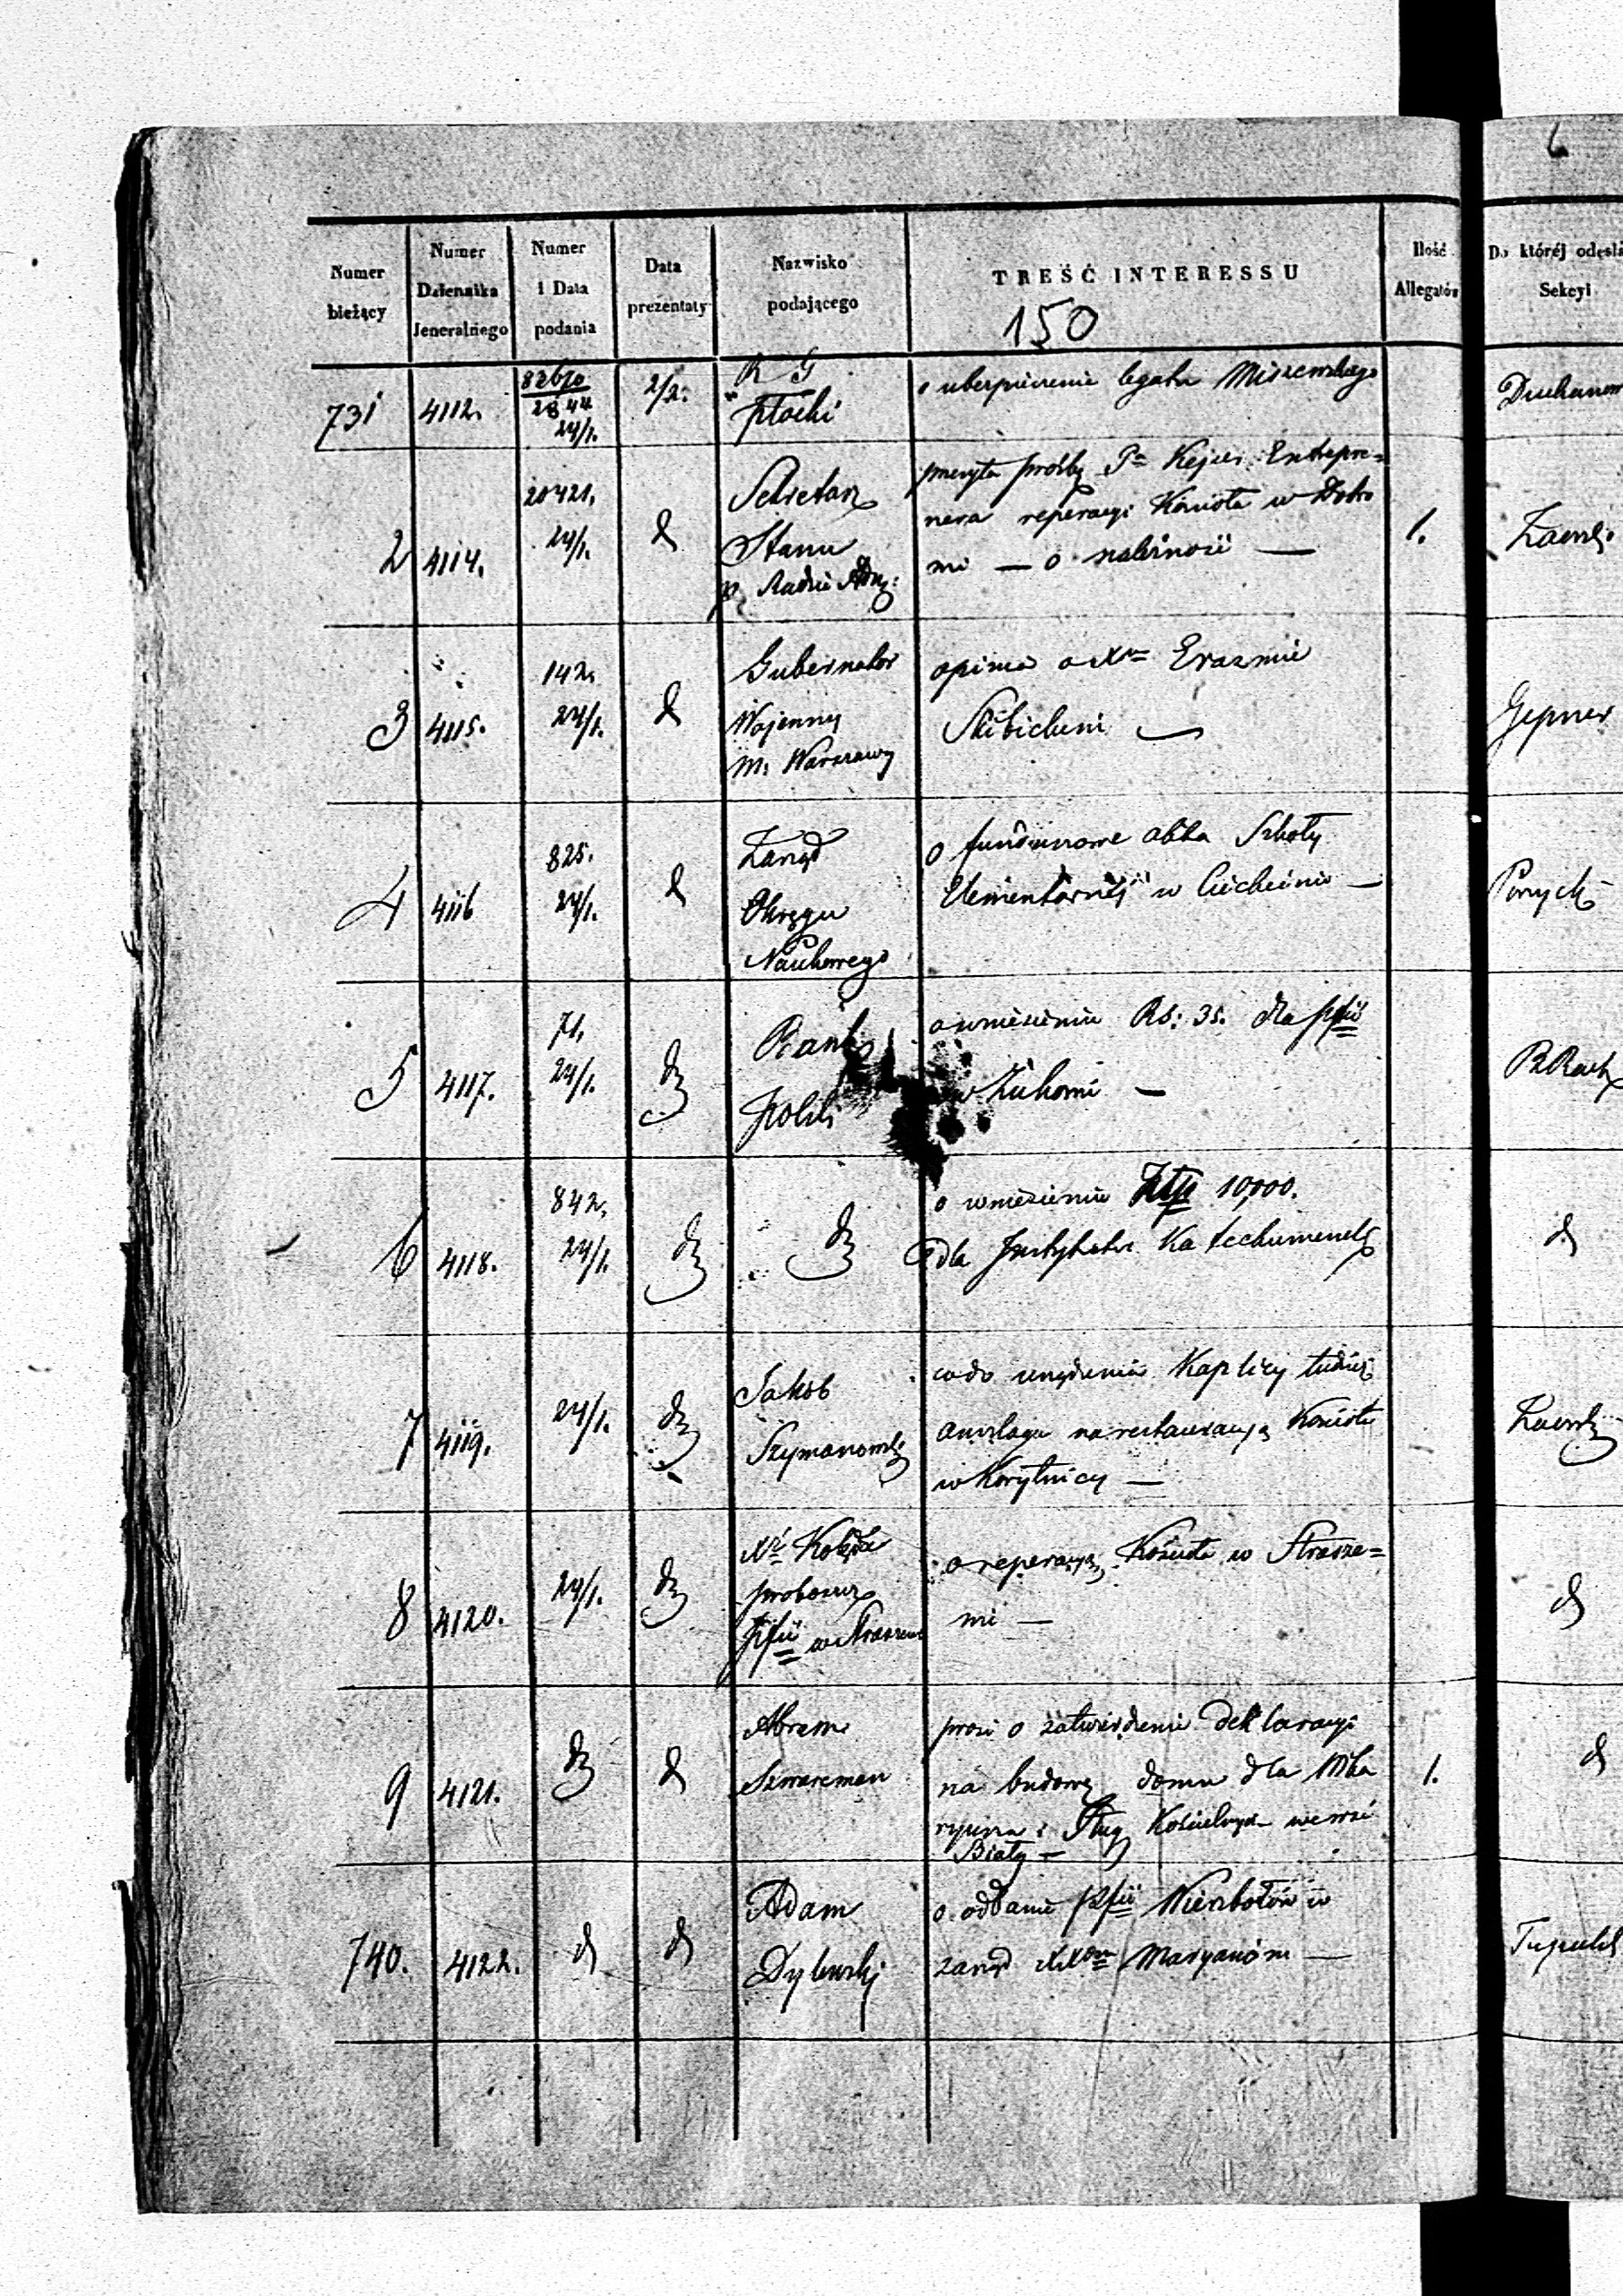 6
Numer bieżący
Numer Dziennika Jeneralnego
Numer i Data podania
Data prezentaty
Nazwisko podającego
TREŚĆ INTERESSU
Ilość Allegatów
Do któréj odesła
Sekcyi
150
731 4112. 2844 24/1. 2/2. R G Płocki o ubezpieczenie legatu Miszewskiego
2 4114. 20421. 24/1. d Sekretarz Stanu p. Radzie Adm: prośbę Pa Entrepre=
nera reperacyi Kościoła w Dobro
ni — o należność — 1.
3 4115. 142. 24/1. d Gubernator Wojenny m. Warszawy opinia o Xdzu Erazmie
Skibickim — Gepner
4 4116 825. 24/1. d Zarząd Okręgu Naukowego o funduszowe dla Szkoły
Elementarnéj w —
5 4117. 71. 24/1. dz Bank Polski o wniesieniu Rs: 35. dla pfii
w Żukowie —
6 4118. 842. 24/1. dz dz o wniesieniu Złp 10,000.
dla Instytutu Katechumenów d
7 4119. 24/1. dz Jakob Szymanowski co do urządzenia Kaplicy tudzież
anszlagu na restauracyą Kościoła
w Korytnicy —
8 4120. 24/1. dz Xdz proboszcz pfii w o reperacyą Kościoła w Strasze=
— d
9 4121. dz d Abram Szwarcman prosi o zatwierdzenie deklaracyi
na budowę domu dla Wika
ryusza i Sług Kościelnych we wsi
Biały — 1. d
740. 4122. d d Adam Dylewski o oddanie pfii Wierzbołów w
zarząd XXom Maryanom —